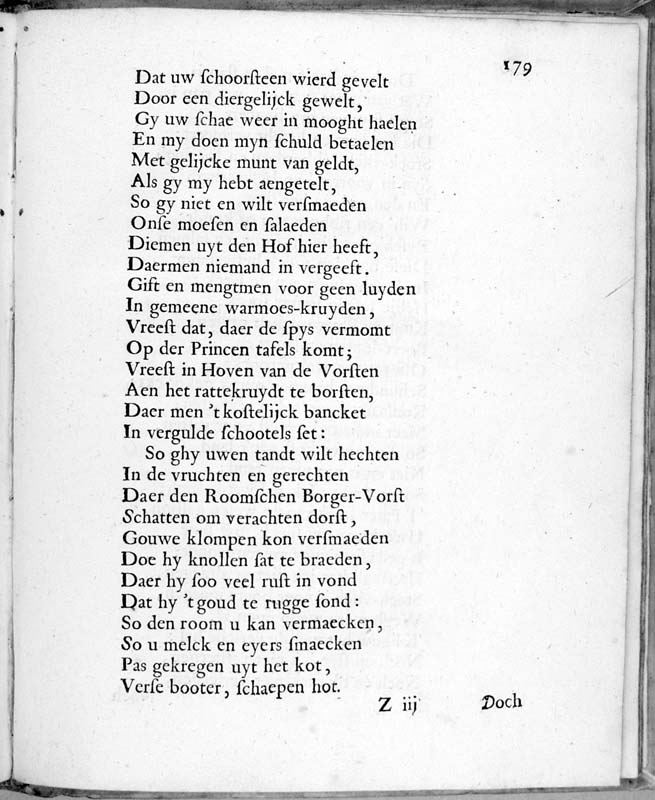 179
Dat uw ſchoorſteen wierd gevelt
Door een diergelijck gewelt,
Gy uw ſchae weer in mooght haelen
En my doen myn ſchuld betaelen
Met gelijcke munt van geldt,
Als gy my hebt aengetelt,
So gy niet en wilt verſmaeden
Onſe moeſen en ſalaeden
Diemen uyt den Hof hier heeft,
Daermen niemand in vergeeft.
Gift en mengtmen voor geen luyden
In gemeene warmoes-kruyden,
Vreeſt dat, daer de ſpys vermomt
Op der Princen tafels komt;
Vreeſt in Hoven van de Vorſten
Aen het rattekruydt te borſten,
Daer men 't koſtelijck bancket
In vergulde ſchootels ſet:
So ghy uwen tandt wilt hechten
In de vruchten en gerechten
Daer den Roomſchen Borger-Vorſt
Schatten om verachten dorſt,
Gouwe klompen kon verſmaeden
Doe hy knollen ſat te braeden,
Daer hy ſoo veel ruſt in vond
Dat hy 't goud te rugge ſond:
So den room u kan vermaecken,
So u melck en eyers ſmaecken
Pas gekregen uyt het kot,
Verſe booter, ſchaepen hot.
Z iij Doch